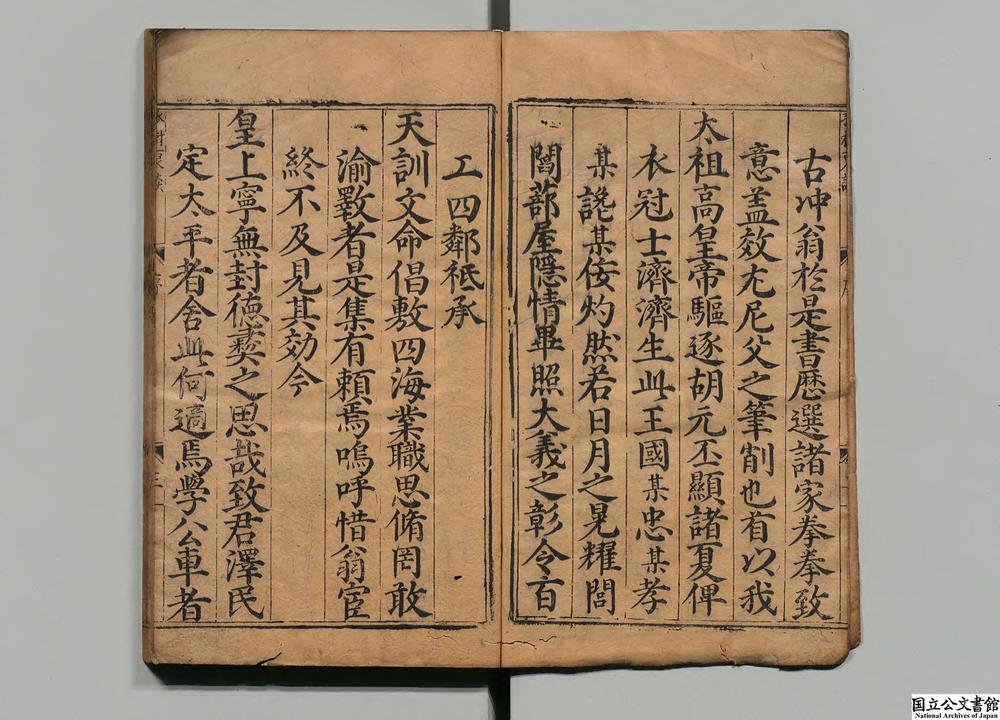 古冲翁於是書歷選諸家拳拳致
意盖效尤尼父之筆削也有以我
太祖高皇帝驅逐胡元丕顯諸夏俾
衣冠士濟濟生此王國某忠某孝
某讒某侫灼然若日月之晃耀閭
閻蔀屋隱情畢照大義之彰令百
工四鄰祗承
天訓文命倡敷四海業職思脩罔敢
渝斁者是集有頼焉嗚呼惜翁宦
終不及見其効今
皇上寧無封德彝之思哉致君澤民
定太平者舍此何適焉學公車者
国立公文書館
National Archives of Japan